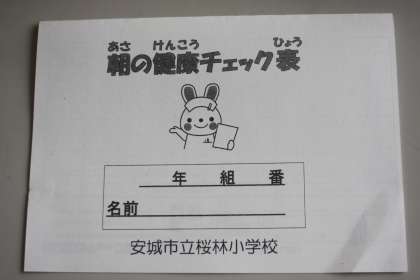 あさ けんこう ひょう
朝の健康チェック表
年 組 番
名前
安城市立桜林小学校